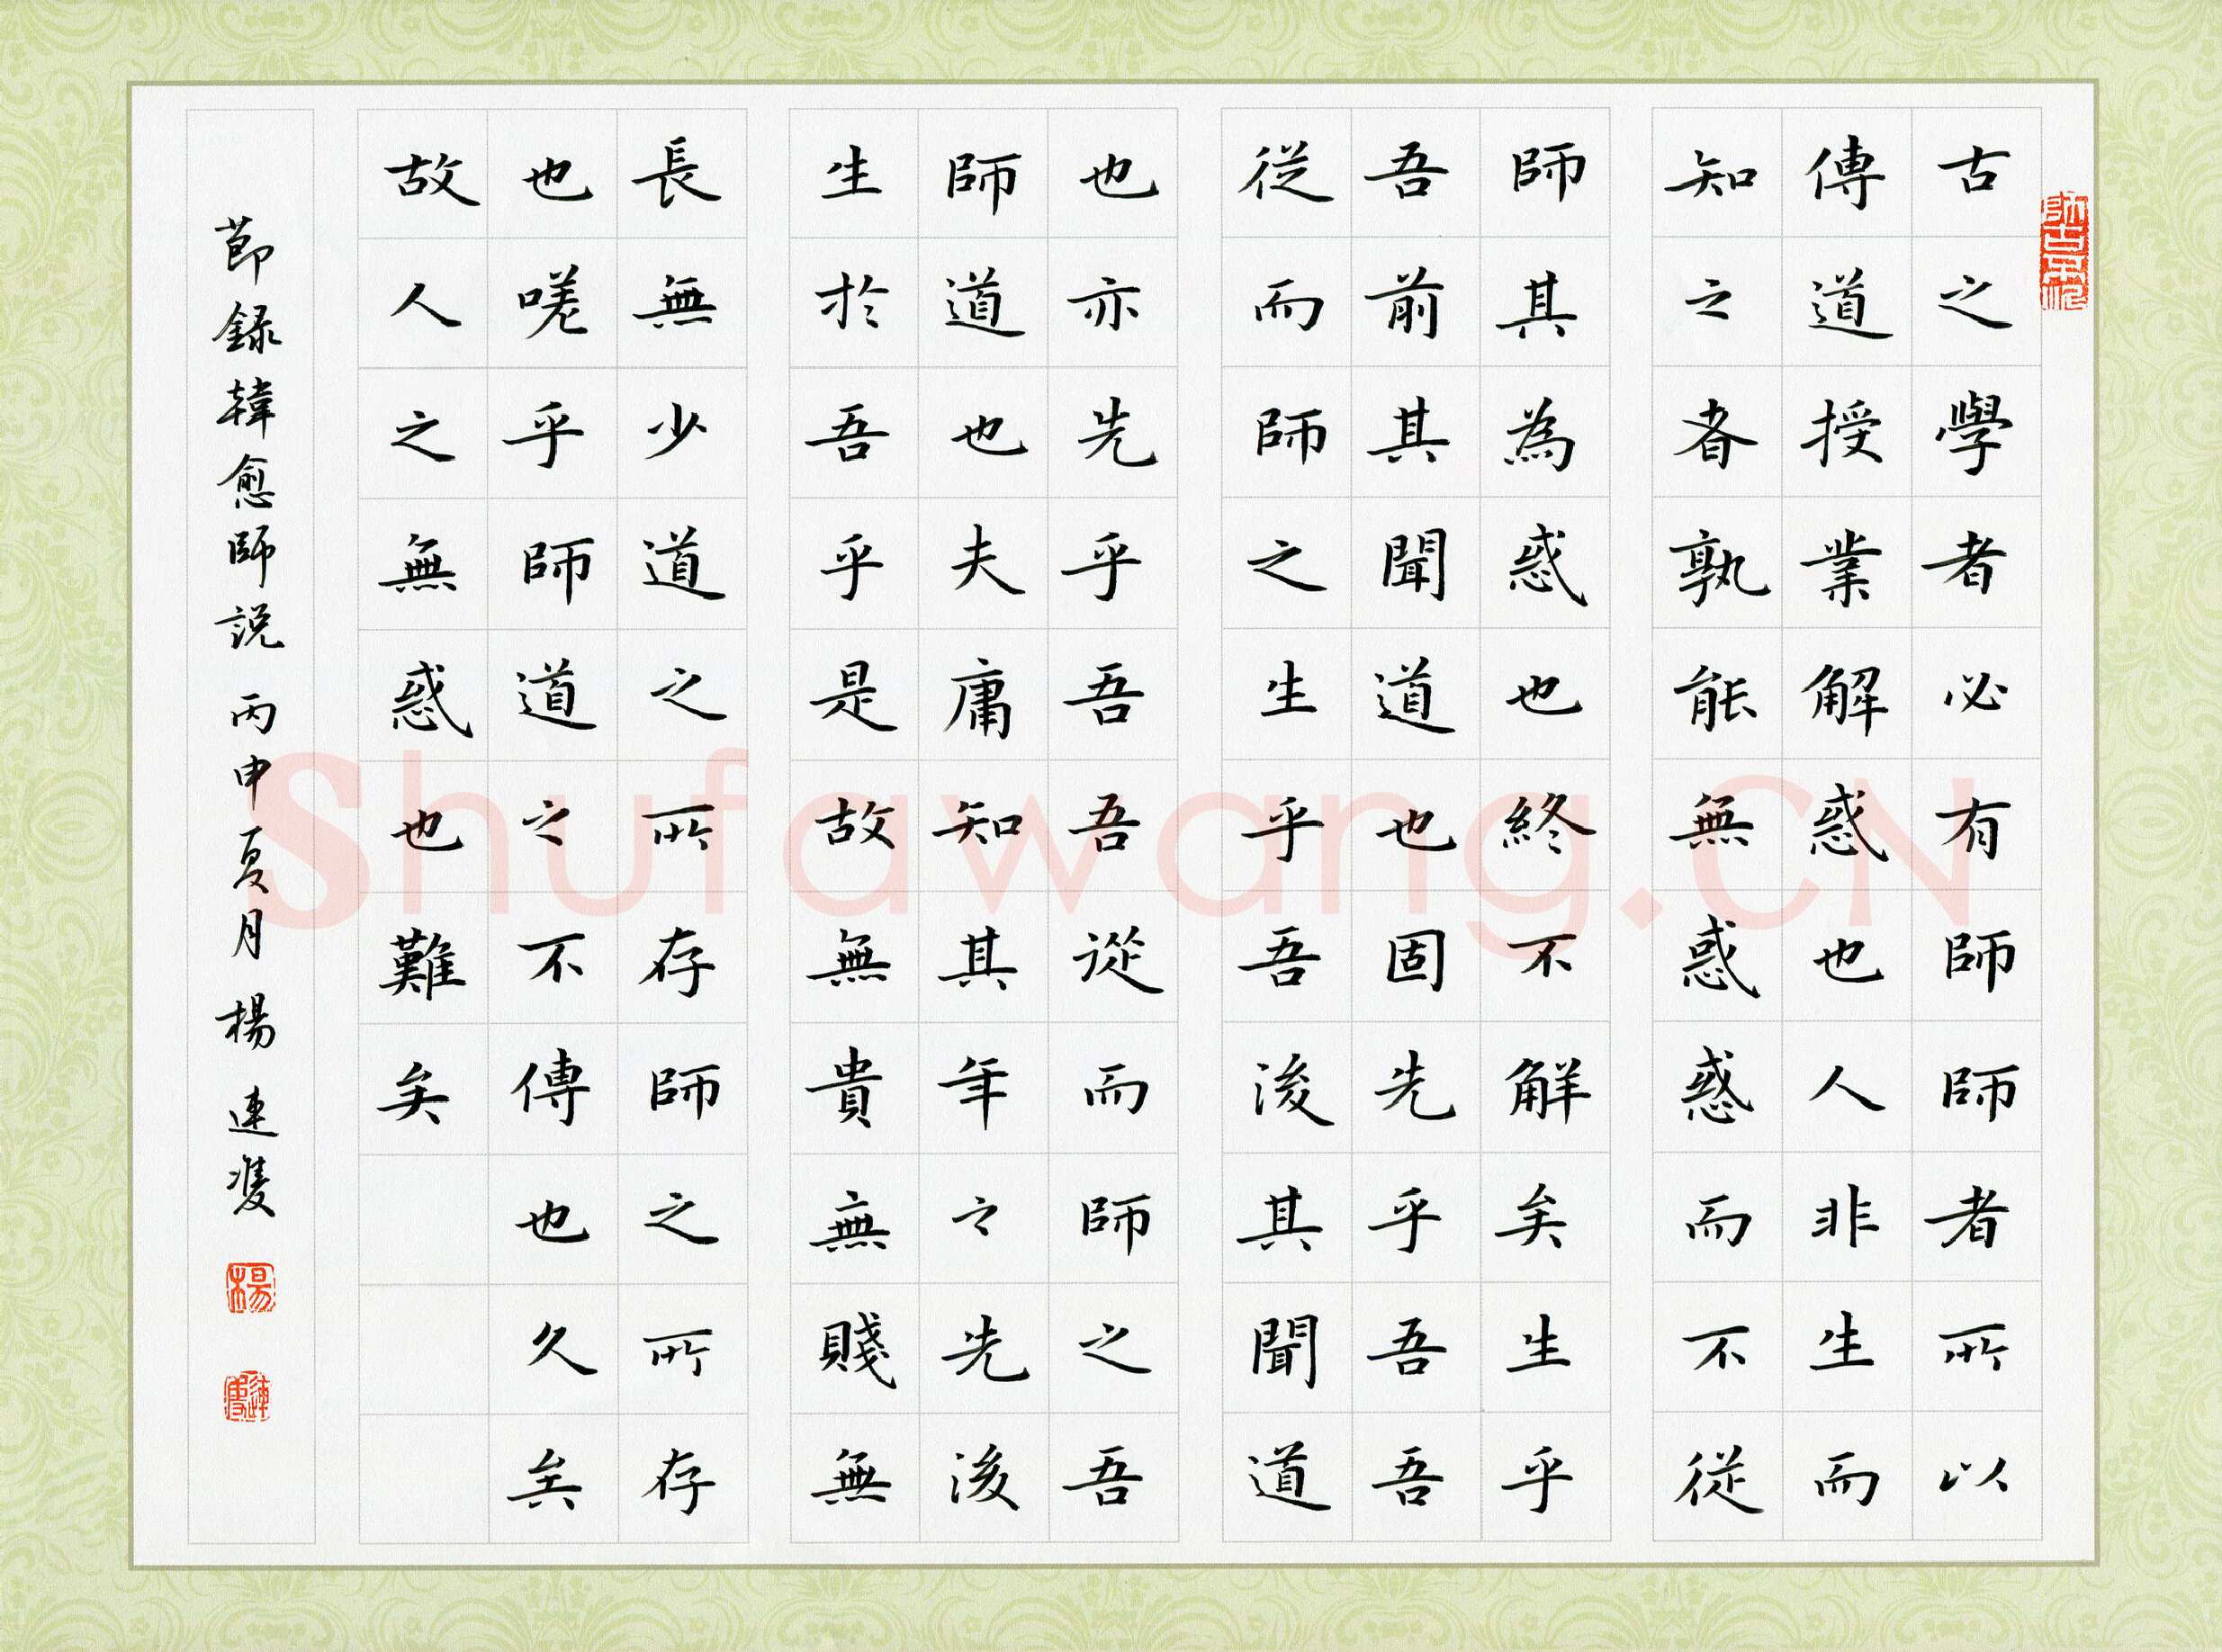 師古不泥
古之學者必有師師者所以
傳道授業解惑也人非生而
知之者孰能無惑惑而不從
師其為惑也終不解矣生乎
吾前其聞道也固先乎吾吾
從而師之生乎吾後其聞道
也亦先乎吾吾從而師之吾
師道也夫庸知其年之先後
生於吾乎是故無貴無賤無
長無少道之所存師之所存
也嗟乎師道之不傳也久矣
故人之無惑也難矣
節録韓愈師説 丙申夏月 楊連雙
楊
連雙
Shufawang.CN